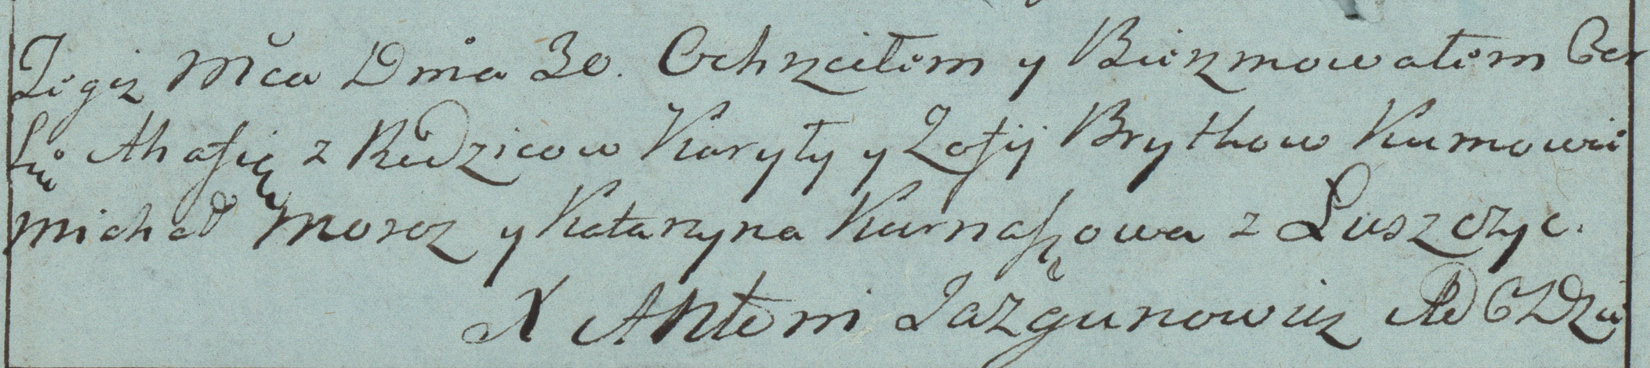 Tegiż Mc̃a Dnia 30. Ochrzciłem y Bierzmowałem Cor
kę Ahafię z Rodzicow Karyły y Zofij Brytkow Kumowie
Michał Moroz y Kataryna Karnaszowa z Łuszczyc.
X Antoni Jazgunowicz